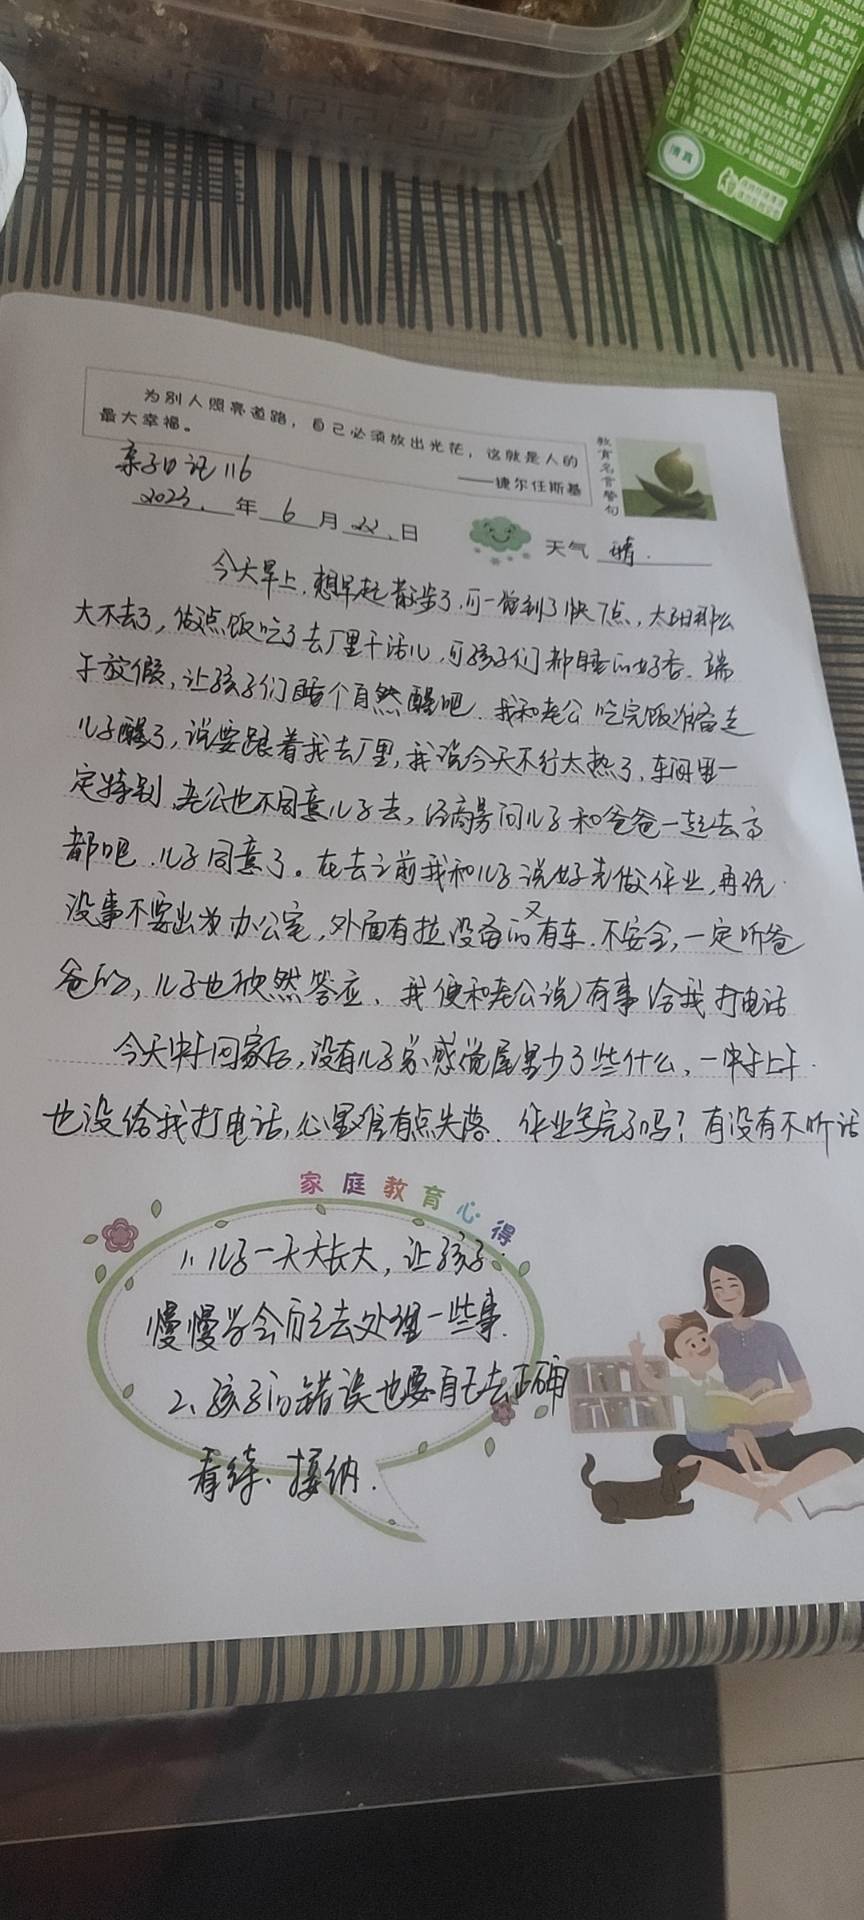 为别人照亮道路，自己必须放出光芒，这就是人的
最大幸福。
——捷尔任斯基
教育名言警句
亲子日记116
2023.年6月22.日
天气 晴.
今天早上.想早起散步了.可一觉到了快7点，太阳那么
大不去了，做点饭吃了去厂里干活儿.可孩子们都睡的好香.端
午放假，让孩子们睡个自然醒吧.我和老公吃完饭准备走
儿子醒了，说要跟着我去厂里，我说今天不行太热了，车间里一
定特别.老公也不同意儿子去，问儿子和爸爸一起去高
都吧.儿子同意了。在去之前我和儿子说好先做作业，再玩.
没事不要出办公室，外面有拉设备的又有车.不安全，一定听爸
爸的，儿子也欣然答应.我便和老公说有事给我打电话
今天中午回家后，没有儿子感觉屋里少了些什么，一中午上午.
也没给我打电话，心里有点失落.作业写完了吗？有没有不听话
家庭教育心得
1、儿子一天天长大，让孩子
慢慢学会自己去处理一些事.
2、孩子的错误也要自己去正确
看待、接纳.
博真